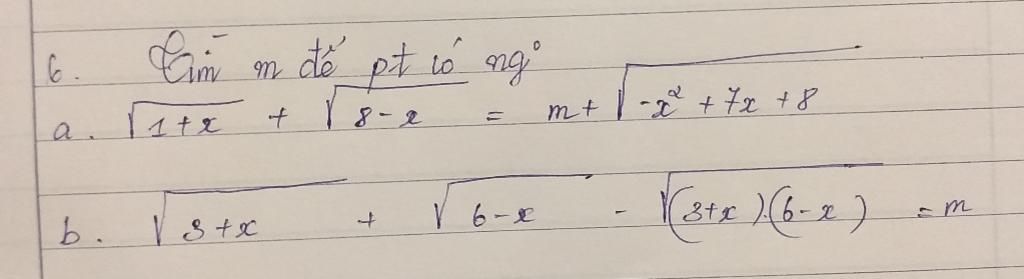 6. Tìm m để pt có ng°
a. √(1+x) + √(8-x) = m + √(-x² + 7x + 8)
b. √(3+x) + √(6-x) - √((3+x).(6-x)) = m